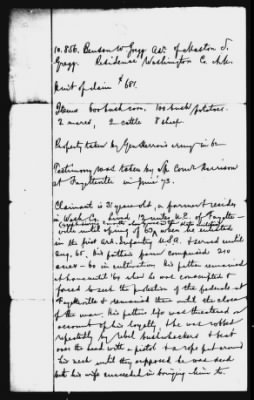 10.856. Benson W Gregg Adr. of Maston S.
Gregg. Residence Washington Co. Ark.
Amt of claim $681.
Items 600 bush corn. 100 bush potatoes.
2 mares, 2 cattle 8 sheep
Property taken by Gen Herron's army in 62
Testimony was taken by Sp. Comr Harrison
at Fayetteville in June 73.
Claimant is 31 years old, a farmer resides
in Wash Co, lived 12 miles N.E. of Fayette-
ville until spring of 63, when he enlisted
in the first Ark. Infantry U.S.A. & served until
Aug. 65. His fathers farm comprised 210
acres - 60 in cultivation. His father remained
at home until 62 when he was conscripted &
forced to seek the protection of the federals at
Fayetteville & remained there until the close
of the war. His fathers life was threatened on
account of his loyalty, he was robbed
repeatedly by rebel bushwhackers & beat
over the head with a pistol & a rope put around
his neck until they supposed he was dead
but his wife succeeded in bringing him to